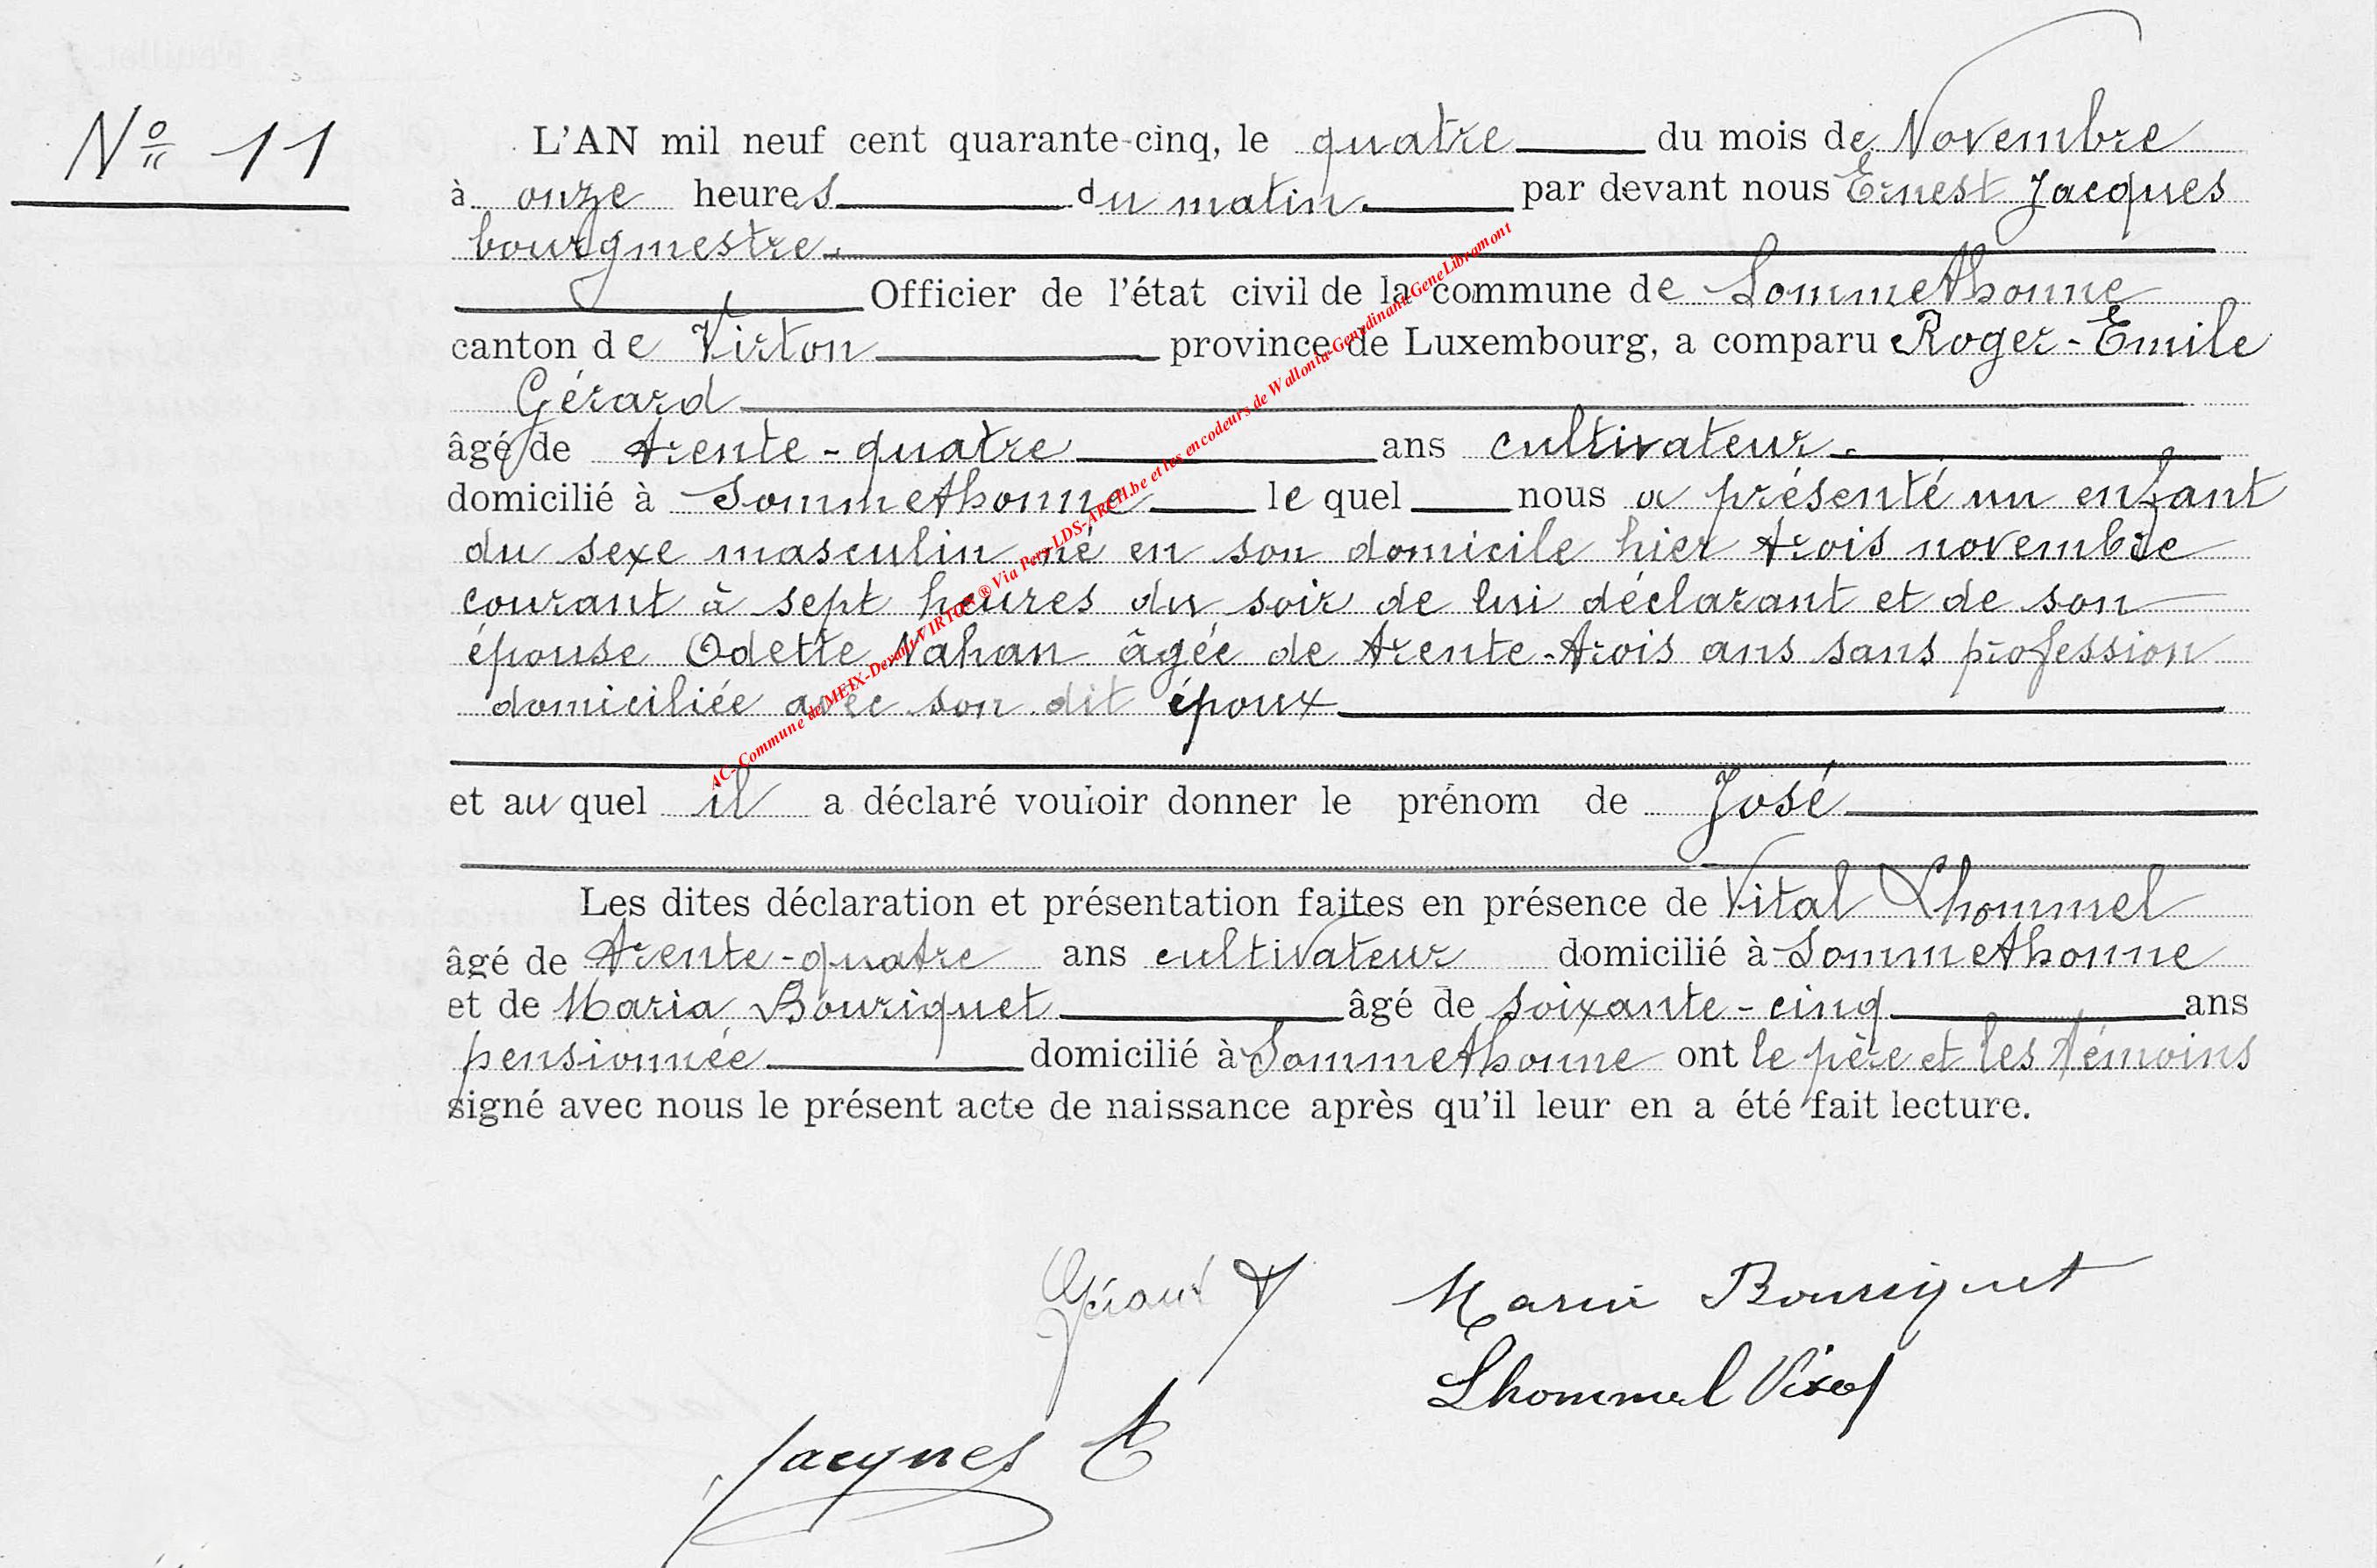 Nº 11
L'AN mil neuf cent quarante-cinq, le quatre du mois de Novembre
à onze heures du matin. par devant nous Ernest Jacques
bourgmestre.
Officier de l'état civil de la commune de Sommethonne
canton de Virton province de Luxembourg, a comparu Roger-Emile
Gérard
âgé de trente-quatre ans cultivateur.
domicilié à Sommethonne le quel nous a présenté un enfant
du sexe masculin né en son domicile hier trois novembre
courant à sept heures du soir de lui déclarant et de son
épouse Odette Nahan âgée de trente-trois ans sans profession
domiciliée avec son dit époux
et au quel il a déclaré vouloir donner le prénom de José
Les dites déclaration et présentation faites en présence de Vital Lhommel
âgé de trente-quatre ans cultivateur domicilié à Sommethonne
et de Maria Bouriquet âgé de soixante-cinq ans
pensionnée domicilié à Sommethonne ont le père et les témoins
signé avec nous le présent acte de naissance après qu'il leur en a été fait lecture.
Gérard Maria Bouriquet
Lhommel Vital
Jacques E
AC-Commune de MEIX-Devant-VIRTON ® Via Pers-LDS-ARCH.be et les encodeurs de Wallonia-Genedinant-GeneLibramont